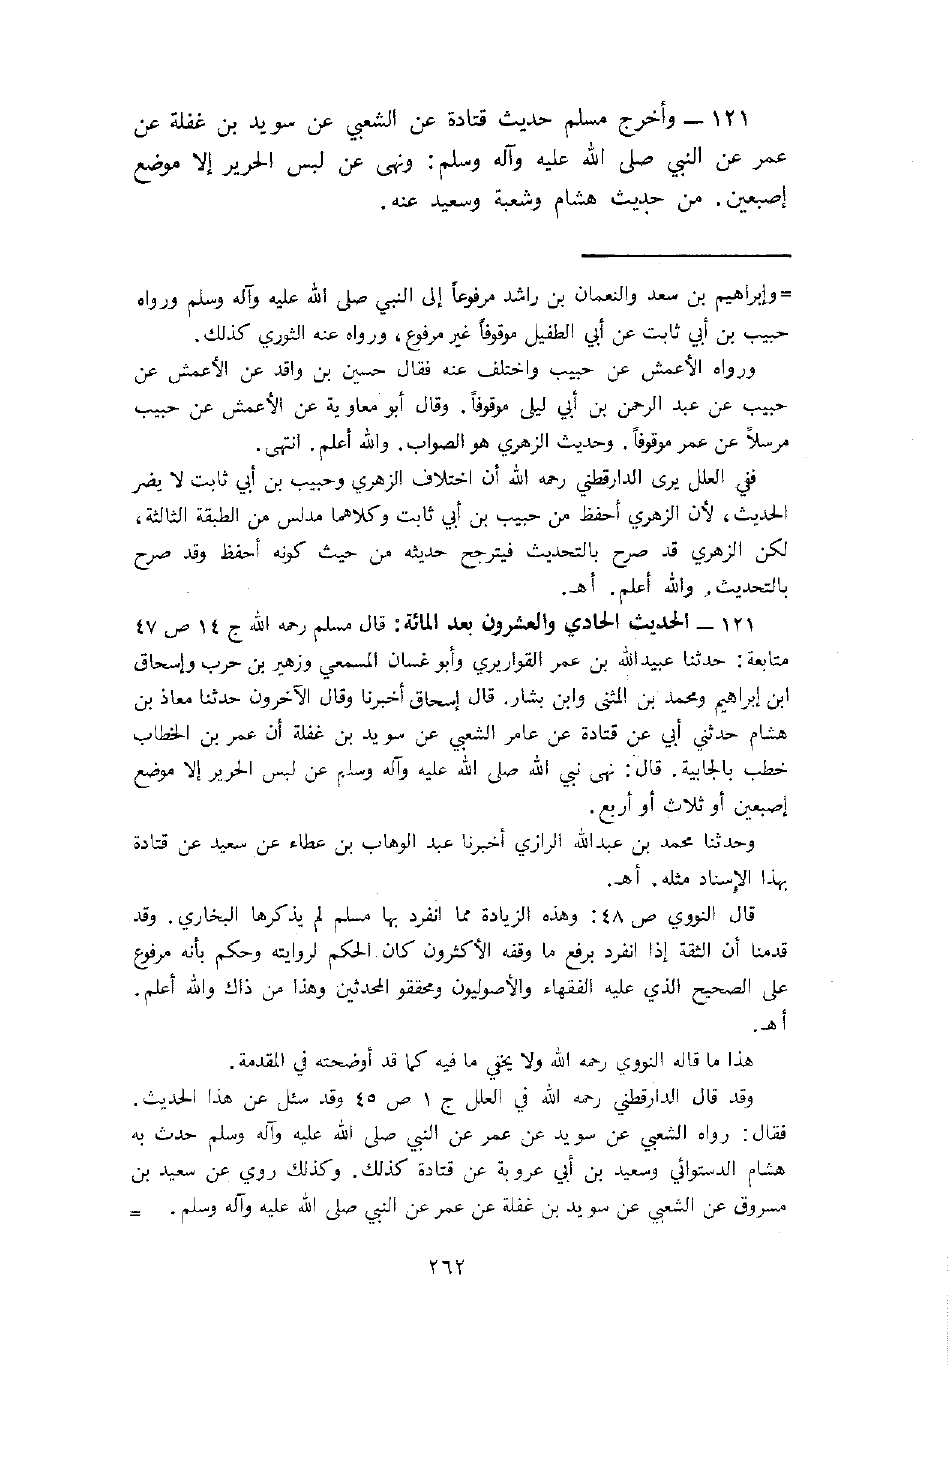 ١٢١ ــ وأخرج مسلم حديث قتادة عن الشعبي عن سويد بن غفلة عن
عمر عن النبي صلى الله عليه وآله وسلم: ونهى عن لبس الحرير إلا موضع
إصبعين. من حديث هشام وشعبة وسعيد عنه.
=وإبراهيم بن سعد والنعمان بن راشد مرفوعاً إلى النبي صلى الله عليه وآله وسلم ورواه
حبيب بن أبي ثابت عن أبي الطفيل موقوفاً غير مرفوع، ورواه عنه الثوري كذلك.
ورواه الأعمش عن حبيب واختلف عنه فقال حسين بن واقد عن الأعمش عن
حبيب عن عبد الرحمن بن أبي ليلى موقوفاً. وقال أبو معاوية عن الأعمش عن حبيب
مرسلاً عن عمر موقوفاً. وحديث الزهري هو الصواب. والله أعلم. انتهى.
ففي العلل يرى الدارقطني رحمه الله أن اختلاف الزهري وحبيب بن أبي ثابت لا يضر
الحديث، لأن الزهري أحفظ من حبيب بن أبي ثابت وكلاهما مدلس من الطبقة الثالثة،
لكن الزهري قد صرح بالتحديث فيترجح حديثه من حيث كونه أحفظ وقد صرح
بالتحديث, والله أعلم. أهـ.
١٢١ ــ الحديث الحادي والعشرون بعد المائة: قال مسلم رحمه الله ج ١٤ ص ٤٧
متابعة: حدثنا عبيدالله بن عمر القواريري وأبو غسان المسمعي وزهير بن حرب وإسحاق
ابن إبراهيم ومحمد بن المثنى وابن بشار. قال إسحاق أخبرنا وقال الآخرون حدثنا معاذ بن
هشام حدثني أبي عن قتادة عن عامر الشعبي عن سويد بن غفلة أن عمر بن الخطاب
خطب بالجابية. قال: نهى نبي الله صلى الله عليه وآله وسلم عن لبس الحرير إلا موضع
إصبعين أو ثلاث أو أربع.
وحدثنا محمد بن عبدالله الرازي أخبرنا عبد الوهاب بن عطاء عن سعيد عن قتادة
بهذا الإسناد مثله. أهـ.
قال النووي ص ٤٨: وهذه الزيادة مما انفرد بها مسلم لم يذكرها البخاري. وقد
قدمنا أن الثقة إذا انفرد برفع ما وقفه الأكثرون كان الحكم لروايته وحكم بأنه مرفوع
على الصحيح الذي عليه الفقهاء والأصوليون ومحققو المحدثين وهذا من ذاك والله أعلم.
أهـ.
هذا ما قاله النووي رحمه الله ولا يخفي ما فيه كما قد أوضحته في المقدمة.
وقد قال الدارقطني رحمه الله في العلل ج ١ ص ٤٥ وقد سئل عن هذا الحديث.
فقال: رواه الشعبي عن سويد عن عمر عن النبي صلى الله عليه وآله وسلم حدث به
هشام الدستوائي وسعيد بن أبي عروبة عن قتادة كذلك. وكذلك روي عن سعيد بن
مسروق عن الشعبي عن سويد بن غفلة عن عمر عن النبي صلى الله عليه وآله وسلم. =
٢٦٢